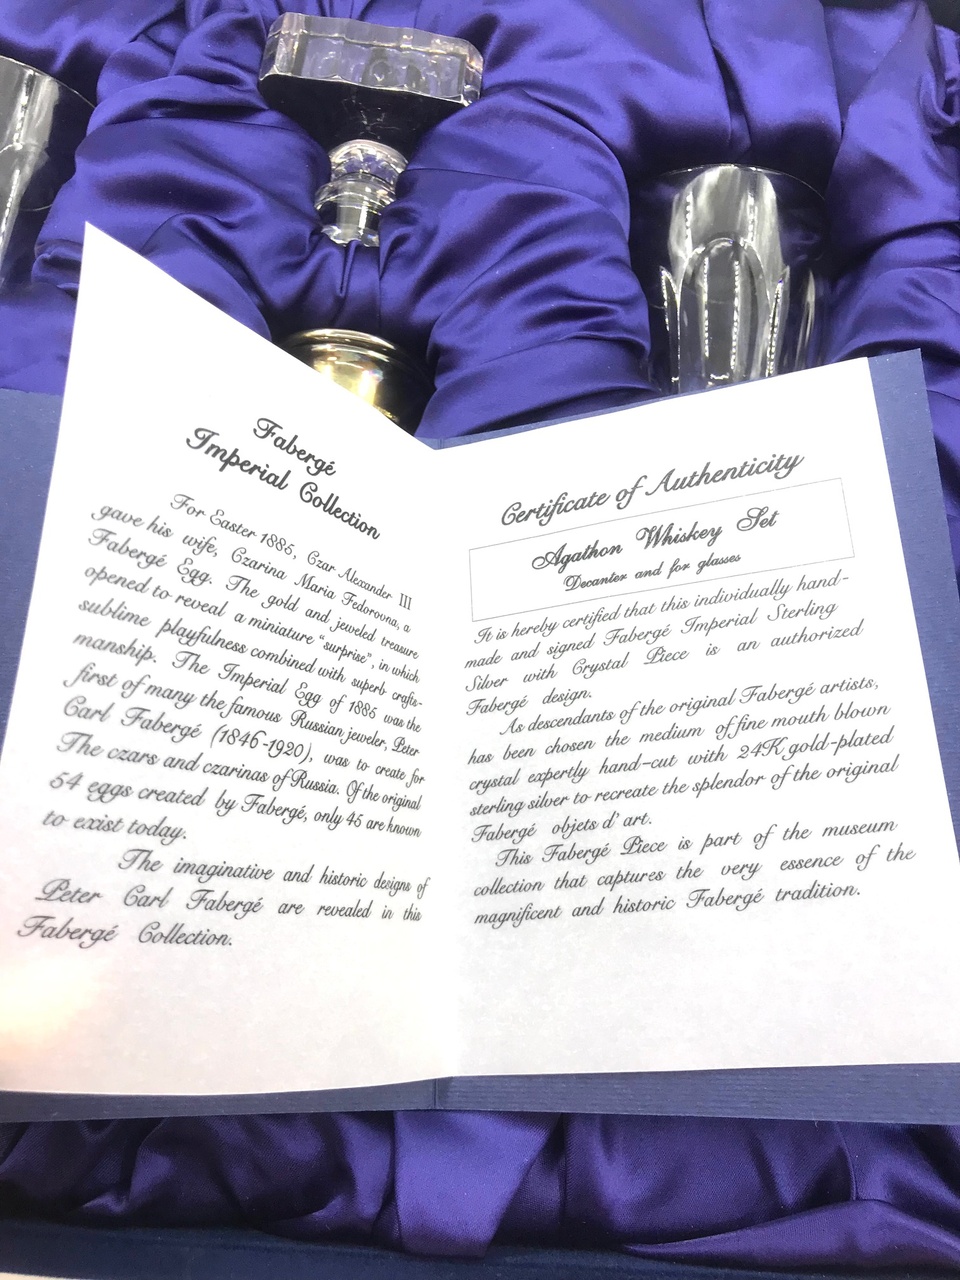 Fabergé
Imperial Collection
For Easter 1885, Czar Alexander III
gave his wife, Czarina Maria Fedorovna, a
Fabergé Egg. The gold and jeweled treasure
opened to reveal a miniature "surprise", in which
sublime playfulness combined with superb crafts-
manship. The Imperial Egg of 1885 was the
first of many the famous Russian jeweler, Peter
Carl Fabergé (1846-1920), was to create for
The czars and czarinas of Russia. Of the original
54 eggs created by Fabergé, only 45 are known
to exist today.
The imaginative and historic designs of
Peter Carl Fabergé are revealed in this
Fabergé Collection.
Certificate of Authenticity
Agathon Whiskey Set
Decanter and for glasses
It is hereby certified that this individually hand-
made and signed Fabergé Imperial Sterling
Silver with Crystal Piece is an authorized
Fabergé design.
As descendants of the original Fabergé artists,
has been chosen the medium of fine mouth blown
crystal expertly hand-cut with 24K gold-plated
sterling silver to recreate the splendor of the original
Fabergé objets d'art.
This Fabergé Piece is part of the museum
collection that captures the very essence of the
magnificent and historic Fabergé tradition.